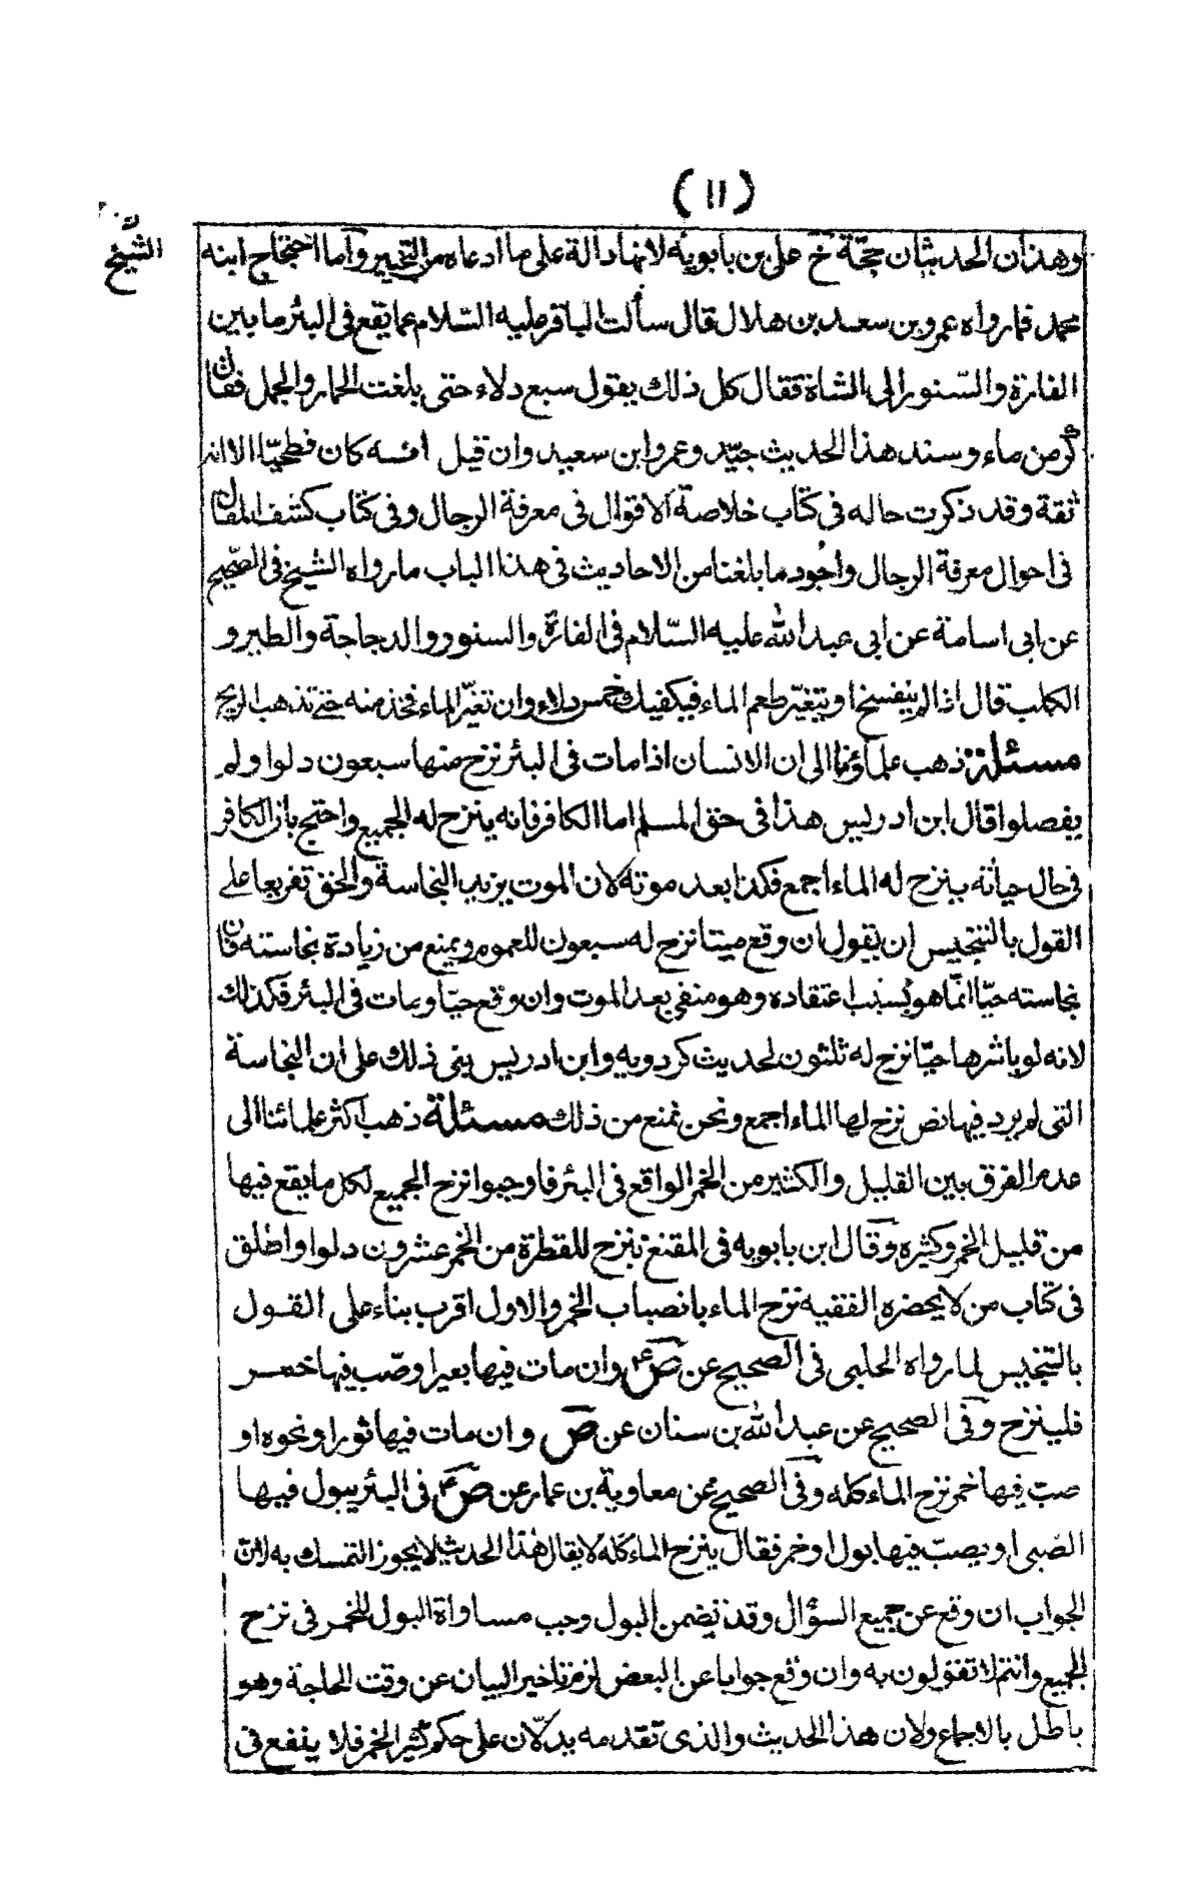 (١١)
الشيخ
وهذان الحديثان حجّة خ على بن بابويه لانها دالة على ما ادعاه من التخيير وامّا احتجاج ابنه
محمد فمارواه عمرو بن سعيد بن هلال قال سألت الباقر عليه السّلام عما يقع فى البئر مابين
الفارة والسّنور الى الشاة فقال كل ذلك يقول سبع دلاء حتى بلغت الحمار والجمل فقال
كرّ من ماء وسند هذا الحديث جيّد وعمرو ابن سعيد وان قيل انه كان فطحيّا الا انه
ثقة وقد ذكرت حاله فى كتاب خلاصة الاقوال فى معرفة الرجال وفى كتاب كشف المقال
فى احوال معرفة الرجال واجود ما بلغنا من الاحاديث فى هذا الباب ما رواه الشيخ فى الصّحيح
عن ابى اسامة عن ابى عبد الله عليه السّلام فى الفارة والسنور والدجاجة والطير و
الكلب قال اذا لم يتفسخ او يتغيّر طعم الماء فيكفيك خمس دلاء وان تغيّر الماء فخذ منه حتى تذهب الريح
مسئلة ذهب علماؤنا الى ان الانسان اذا مات فى البئر نزح منها سبعون دلوا ولم
يفصلوا قال ابن ادريس هذا فى حق المسلم اما الكافر فانه ينزح له الجميع واحتج بان الكافر
فى حال حياته ينزح له الماء اجمع فكذا بعد موته لان الموت يزيد النجاسة والحق تفريعا على
القول بالتنجيس ان يقول ان وقع ميتا نزح له سبعون للعموم ويمنع من زيادة نجاسته فان
نجاسته حيّا انّما هو بسبب اعتقاده وهو منفى بعد الموت وان وقع حيّا ومات فى البئر فكذلك
لانه لو باشرها حيّا نزح له ثلثون لحديث كردويه وابن ادريس بنى ذلك على ان النجاسة
التى لم يرد فيها نص نزح لها الماء اجمع ونحن نمنع من ذلك مسئلة ذهب اكثر علمائنا الى
عدم الفرق بين القليل والكثير من الخمر الواقع فى البئر فاوجبوا نزح الجميع لكل ما يقع فيها
من قليل الخمر وكثيره وقال ابن بابويه فى المقنع ينزح للقطرة من الخمر عشرون دلوا واطلق
فى كتاب من لا يحضره الفقيه نزح الماء بانصباب الخمر والاول اقرب بناء على القول
بالتنجيس لما رواه الحلبى فى الصحيح عن ص ع وان مات فيها بعير او صّب فيها خمر
فلينزح وفى الصحيح عن عبد الله بن سنان عن ص وان مات فيها ثور او نحوه او
صبّ فيها خمر نزح الماء كله وفى الصحيح عن معاوية بن عمار عن ص ع فى البئر يبول فيها
الصّبى او يصبّ فيها بول او خمر فقال ينزح الماء كله لا يقال هذا الحديث لا يجوز التمسك به لان
الجواب ان وقع عن جميع السؤال وقد تضمن البول وجب مساواة البول للخمر فى نزح
الجميع وانتم لا تقولون به وان وقع جوابا عن البعض لزم تاخير البيان عن وقت الحاجة وهو
باطل بالاجماع ولان هذا الحديث والذى تقدمه يدلّان على حكم كثير الخمر فلا ينفع فى